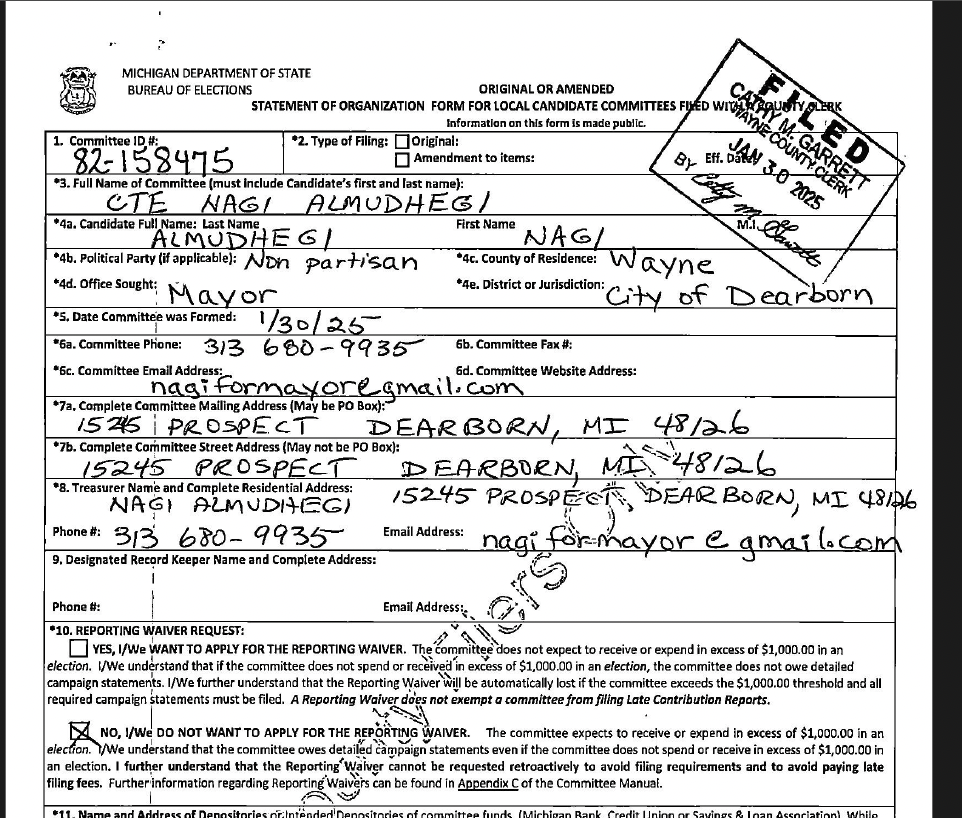 MICHIGAN DEPARTMENT OF STATE
BUREAU OF ELECTIONS
ORIGINAL OR AMENDED
STATEMENT OF ORGANIZATION FORM FOR LOCAL CANDIDATE COMMITTEES FILED WITH A COUNTY CLERK
Information on this form is made public.
FILED
CATHY M. GARRETT
WAYNE COUNTY CLERK
JAN 30 2025
BY Cathy M Garrett
1. Committee ID #: *2. Type of Filing: Original:
82-158475 Amendment to items: Eff. Date:
*3. Full Name of Committee (must include Candidate's first and last name):
CTE NAGI ALMUDHEGI
*4a. Candidate Full Name: Last Name First Name M.I.
ALMUDHEGI NAGI
*4b. Political Party (if applicable): Non partisan *4c. County of Residence: Wayne
*4d. Office Sought: Mayor *4e. District or Jurisdiction: City of Dearborn
*5. Date Committee was Formed: 1/30/25
*6a. Committee Phone: 313 680-9935 6b. Committee Fax #:
*6c. Committee Email Address: 6d. Committee Website Address:
nagiformayor@gmail.com
*7a. Complete Committee Mailing Address (May be PO Box):
15245 PROSPECT DEARBORN, MI 48126
*7b. Complete Committee Street Address (May not be PO Box):
15245 PROSPECT DEARBORN, MI 48126
*8. Treasurer Name and Complete Residential Address: 15245 PROSPECT, DEARBORN, MI 48126
NAGI ALMUDHEGI
Phone #: 313 680-9935 Email Address: nagiformayor@gmail.com
9. Designated Record Keeper Name and Complete Address:
Phone #: Email Address:
*10. REPORTING WAIVER REQUEST:
YES, I/We WANT TO APPLY FOR THE REPORTING WAIVER. The committee does not expect to receive or expend in excess of $1,000.00 in an
election. I/We understand that if the committee does not spend or received in excess of $1,000.00 in an election, the committee does not owe detailed
campaign statements. I/We further understand that the Reporting Waiver will be automatically lost if the committee exceeds the $1,000.00 threshold and all
required campaign statements must be filed. A Reporting Waiver does not exempt a committee from filing Late Contribution Reports.
NO, I/We DO NOT WANT TO APPLY FOR THE REPORTING WAIVER. The committee expects to receive or expend in excess of $1,000.00 in an
election. I/We understand that the committee owes detailed campaign statements even if the committee does not spend or receive in excess of $1,000.00 in
an election. I further understand that the Reporting Waiver cannot be requested retroactively to avoid filing requirements and to avoid paying late
filing fees. Further information regarding Reporting Waivers can be found in Appendix C of the Committee Manual.
*11. Name and Address of Depositories or Intended Depositories of committee funds. (Michigan Bank, Credit Union or Savings & Loan Association). While